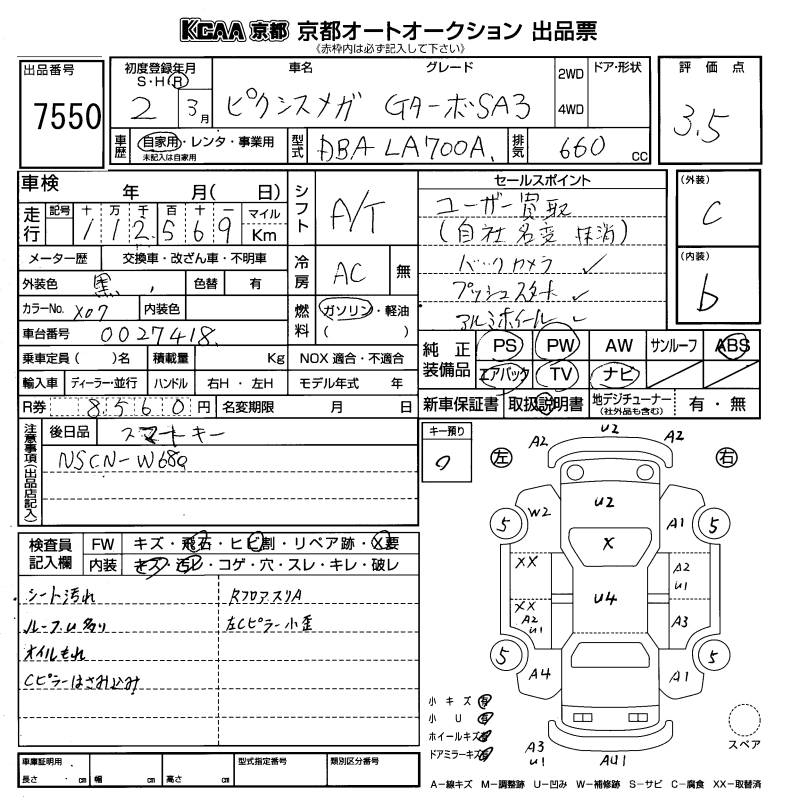 KCAA 京都 京都オートオークション 出品票
《赤枠内は必ず記入して下さい》
出品番号
7550
初度登録年月
S・H・R
2 3月
車名 グレード
ピクシスメガ Gターボ SA3
2WD
4WD
ドア・形状
評価点
3.5
車歴
自家用・レンタ・事業用
未記入は自家用
型式
DBA LA700A
排気
660 cc
車検 年 月( 日)
走行
記号 十 万 千 百 十 一
112569
マイル
Km
シフト
A/T
セールスポイント
ユーザー買取
(自社名変 抹消)
バックカメラ ✓
プッシュスタート ✓
アルミホイール ✓
(外装)
C
(内装)
b
メーター歴 交換車・改ざん車・不明車
外装色 黒 色替 有
冷房
AC 無
カラーNo. X07 内装色
燃料
ガソリン・軽油
( )
車台番号 0027418
乗車定員 ( )名 積載量 Kg NOX 適合・不適合
輸入車 ディーラー・並行 ハンドル 右H・左H モデル年式 年
純正装備品
PS PW AW サンルーフ ABS
エアバック TV ナビ
R券 8560円 名変期限 月 日
新車保証書 取扱説明書 地デジチューナー 有・無
(社外品も含む)
注意事項(出品店記入)
後日品 スマートキー
NSCN-W68
キー預り
0
検査員記入欄
FW キズ・飛石・ヒビ割・リペア跡・X要
内装 キズ・汚レ・コゲ・穴・スレ・キレ・破レ
シート汚れ RフロアスリA
ルーフU多り 左Cピラー小歪
オイルもれ
Cピラーはさみ込み
左 右
A2 U2 A2
W2 U2 A1
5 5
X
XX A2 U1
U4
XX A2 U1 A3
5 5
A4 A1
A3 U1 AU1
小キズ 有
小U 有
ホイールキズ 有
ドアミラーキズ 有
スペア
車庫証明用
長さ cm 幅 cm 高さ cm
型式指定番号 類別区分番号
A−線キズ M−調整跡 U−凹み W−補修跡 S−サビ C−腐食 XX−取替済